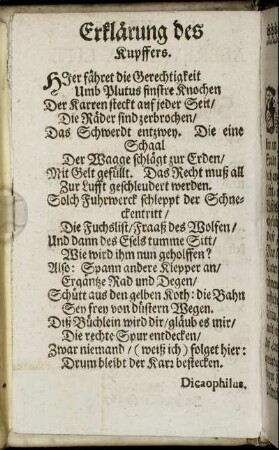 Erklärung des
Kupffers.
HIer fähret die Gerechtigkeit
Umb Plutus finstre Knochen
Der Karren steckt auf jeder Seit/
Die Räder sind zerbrochen/
Das Schwerdt entzwey. Die eine
Schaal
Der Waage schlägt zur Erden/
Mit Gelt gefüllt. Das Recht muß all
Zur Lufft geschleudert werden.
Solch Fuhrwerck schleppt der Schne-
ckentritt/
Die Fuchslist/ Fraaß des Wolfen/
Und dann des Esels tumme Sitt/
Wie wird ihm nun geholffen?
Also: Spann andere Klepper an/
Ergäntze Rad und Degen/
Schütt aus den gelben Koth: die Bahn
Sey frey von düstern Wegen.
Diß Büchlein wird dir/ gläub es mir/
Die rechte Spur entdecken/
Zwar niemand/ (weiß ich) folget hier:
Drum bleibt der Karz bestecken.
Dicaophilus.